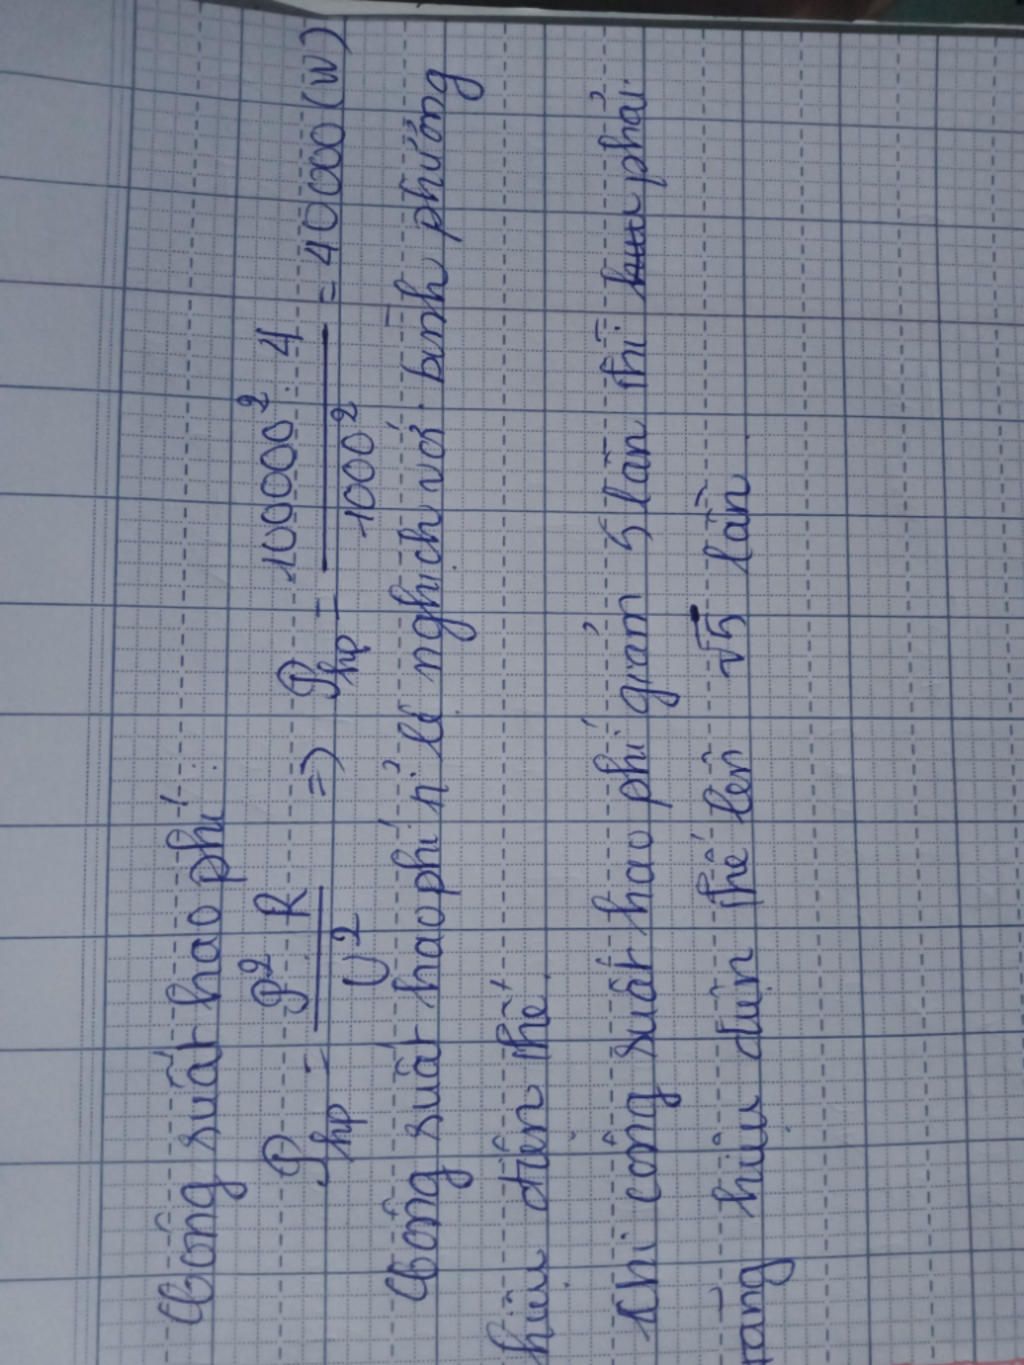 Công suất hao phí:
P hp = P² R / U² => P hp = 100000². 4 / 1000² = 40000 (W)
Công suất hao phí tỉ lệ nghịch với bình phương
hiệu điện thế.
Khi công suất hao phí giảm 5 lần thì phải
tăng hiệu điện thế lên √5 lần